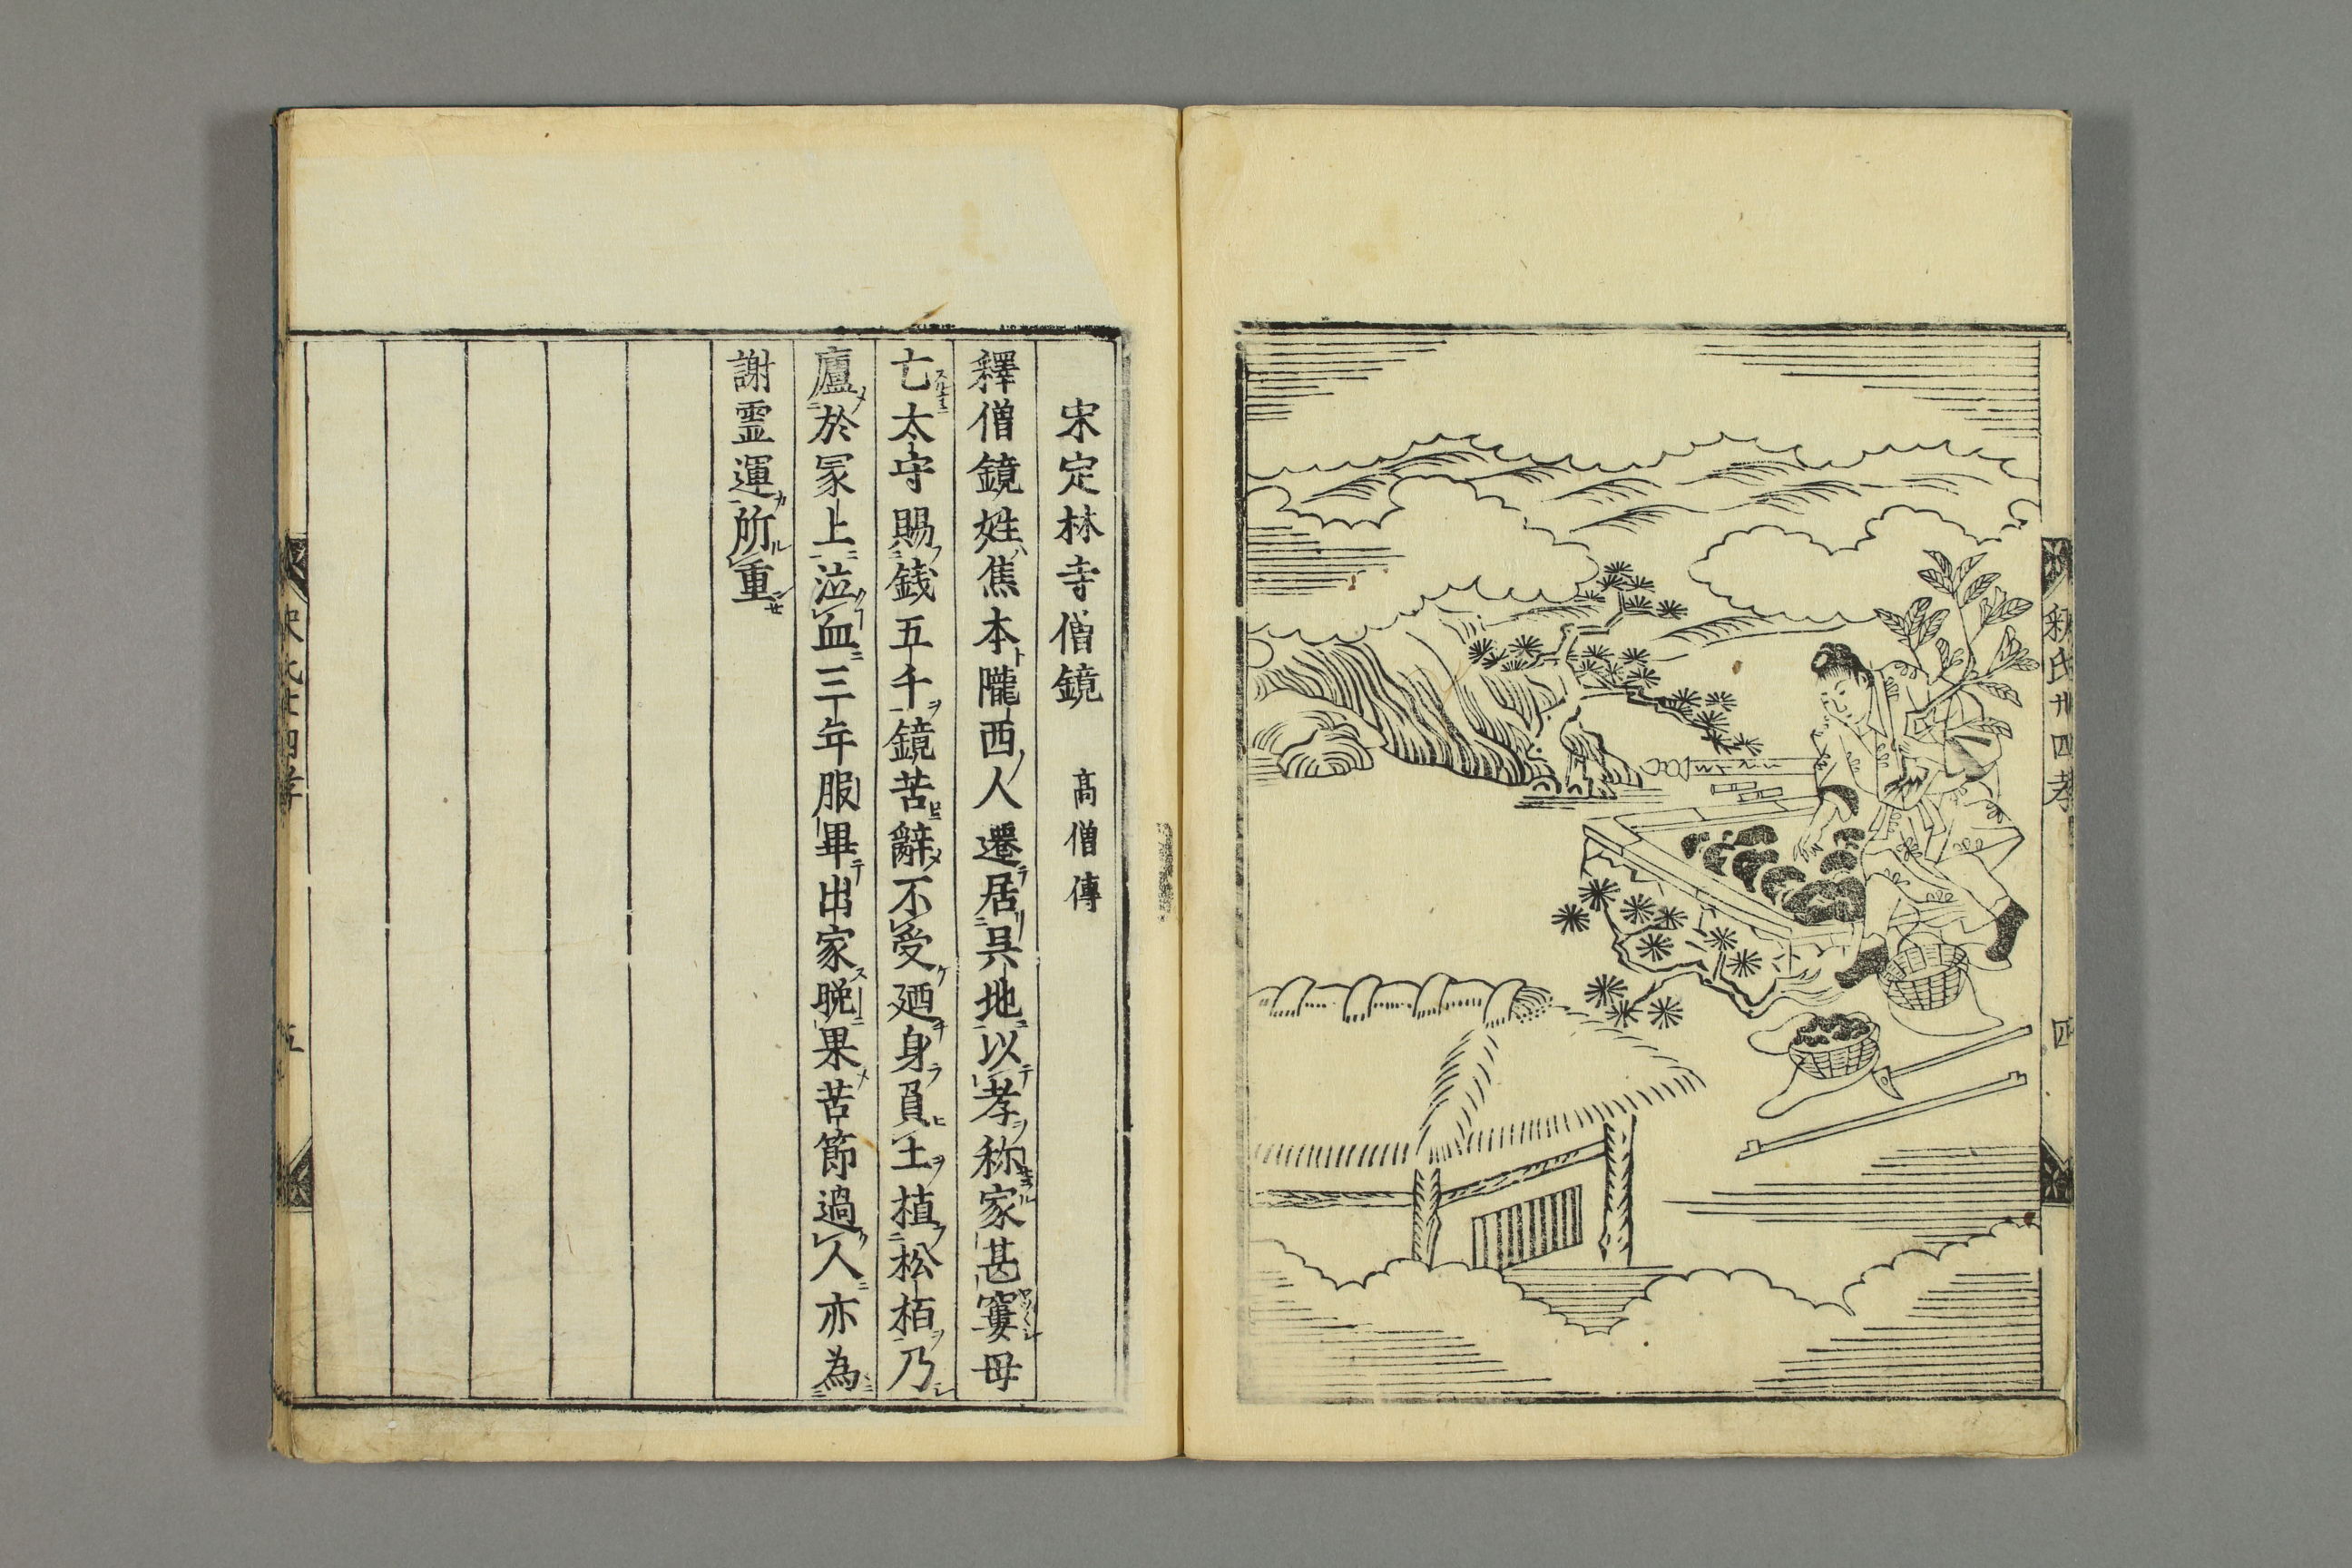 釈氏卄四孝
四
宋定林寺僧鏡　高僧傳
釋僧鏡姓焦本隴西人遷居呉地以孝称家甚窶母
亡太守賜銭五千鏡苦辭不受廼身負土植松栢乃
廬於冢上泣血三年服畢出家晩果苦節過人亦為
謝霊運所重
五